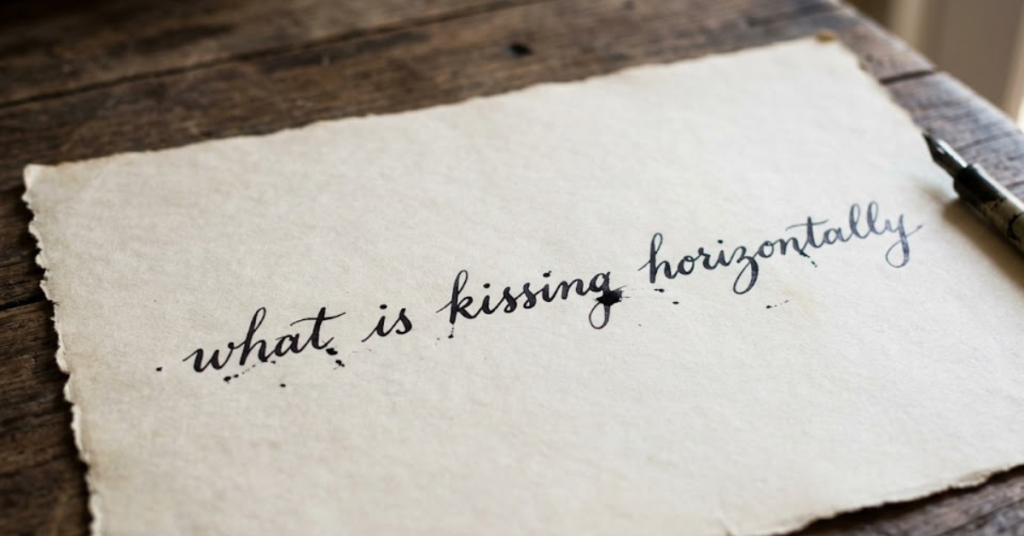 what is kissing horizontally